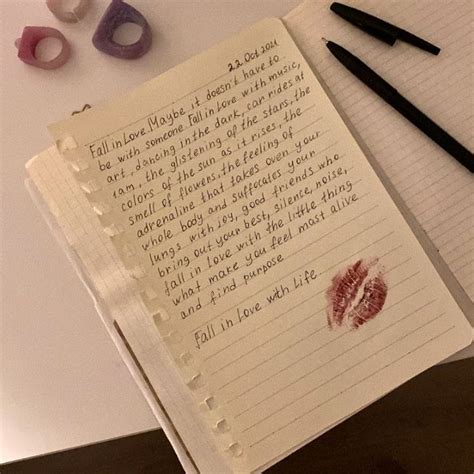 22 Oct 2021
Fall in Love. Maybe it doesn't have to
be with someone. Fall in Love with music,
art, dancing in the dark, car rides at
1am, the glistening of the stars, the
colors of the sun as it rises, the
smell of flowers, the feeling of
adrenaline that takes over your
whole body and suffocates your
lungs with joy, good friends who
bring out your best, silence, noise,
fall in love with the little thing
what make you feel mast alive
and find punpose
Fall in Love with Life